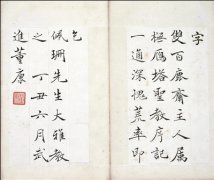 字
雙百鹿齋主人属
極雁塔聖教序記
一通深愧荒率即
乞
佩珊先生大雅教
之丁丑六月武
進董康